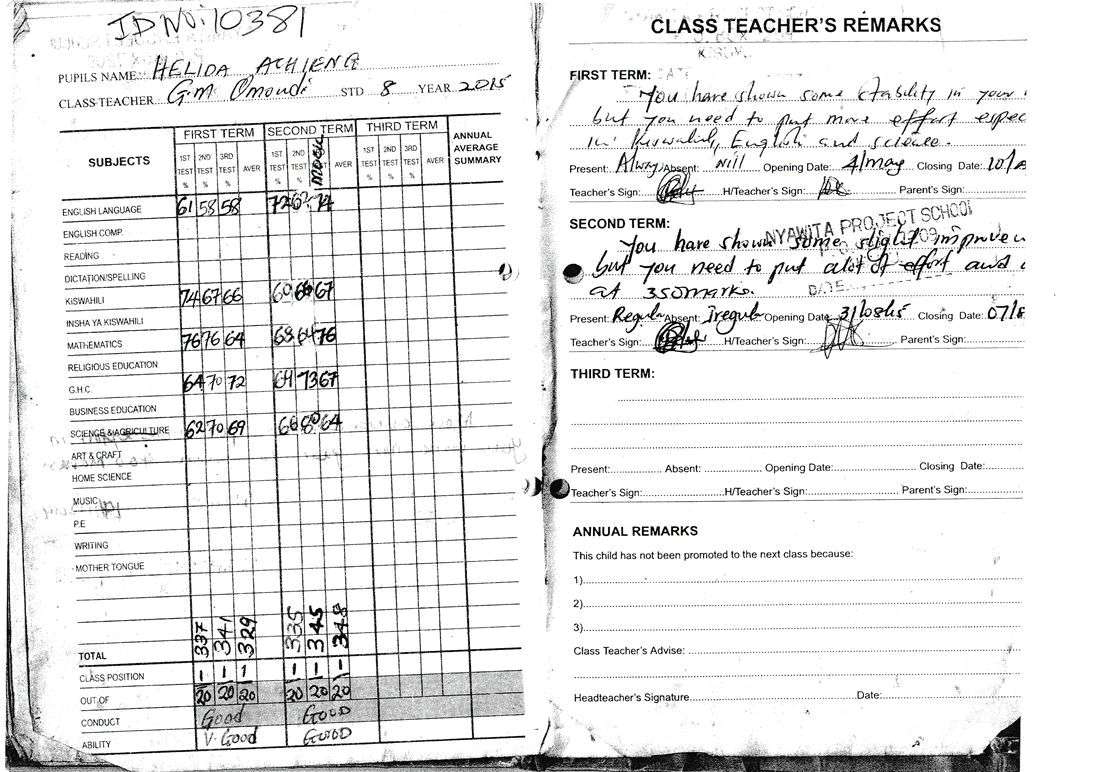 ID No: 10381
PUPILS NAME HELIDA ACHIENG
CLASS TEACHER G.M. Omondi STD 8 YEAR 2015
SUBJECTS FIRST TERM SECOND TERM THIRD TERM ANNUAL AVERAGE SUMMARY
1ST TEST % 2ND TEST % 3RD TEST % AVER 1ST TEST % 2ND TEST % MOCK AVER 1ST TEST % 2ND TEST % 3RD TEST % AVER
ENGLISH LANGUAGE 61 58 58 72 62 74
ENGLISH COMP.
READING
DICTATION/SPELLING
KISWAHILI 74 67 66 60 66 67
INSHA YA KISWAHILI
MATHEMATICS 76 76 64 68 64 76
RELIGIOUS EDUCATION
G.H.C. 64 70 72 69 73 67
BUSINESS EDUCATION
SCIENCE & AGRICULTURE 62 70 69 66 80 64
ART & CRAFT
HOME SCIENCE
MUSIC
P.E
WRITING
MOTHER TONGUE
TOTAL 337 341 329 335 345 348
CLASS POSITION 1 1 1 1 1 1
OUT OF 20 20 20 20 20 20
CONDUCT Good GOOD
ABILITY V. Good GOOD
CLASS TEACHER'S REMARKS
FIRST TERM:
You have shown some stability in your
but you need to put more effort espec
in Kiswahili, English and science.
Present: Alway Absent: nill Opening Date: 4/may Closing Date: 10/
Teacher's Sign: H/Teacher's Sign: Parent's Sign:
NYAWITA PROJECT SCHOOL
SECOND TERM:
You have shown some slight improve
but you need to put alot of effort and
DATE
at 350marks.
Present: Regul Absent: Iregul Opening Date: 31/08/15 Closing Date: 07/8
Teacher's Sign: H/Teacher's Sign: Parent's Sign:
THIRD TERM:
Present: Absent: Opening Date: Closing Date:
Teacher's Sign: H/Teacher's Sign: Parent's Sign:
ANNUAL REMARKS
This child has not been promoted to the next class because:
1)
2)
3)
Class Teacher's Advise:
Headteacher's Signature Date: